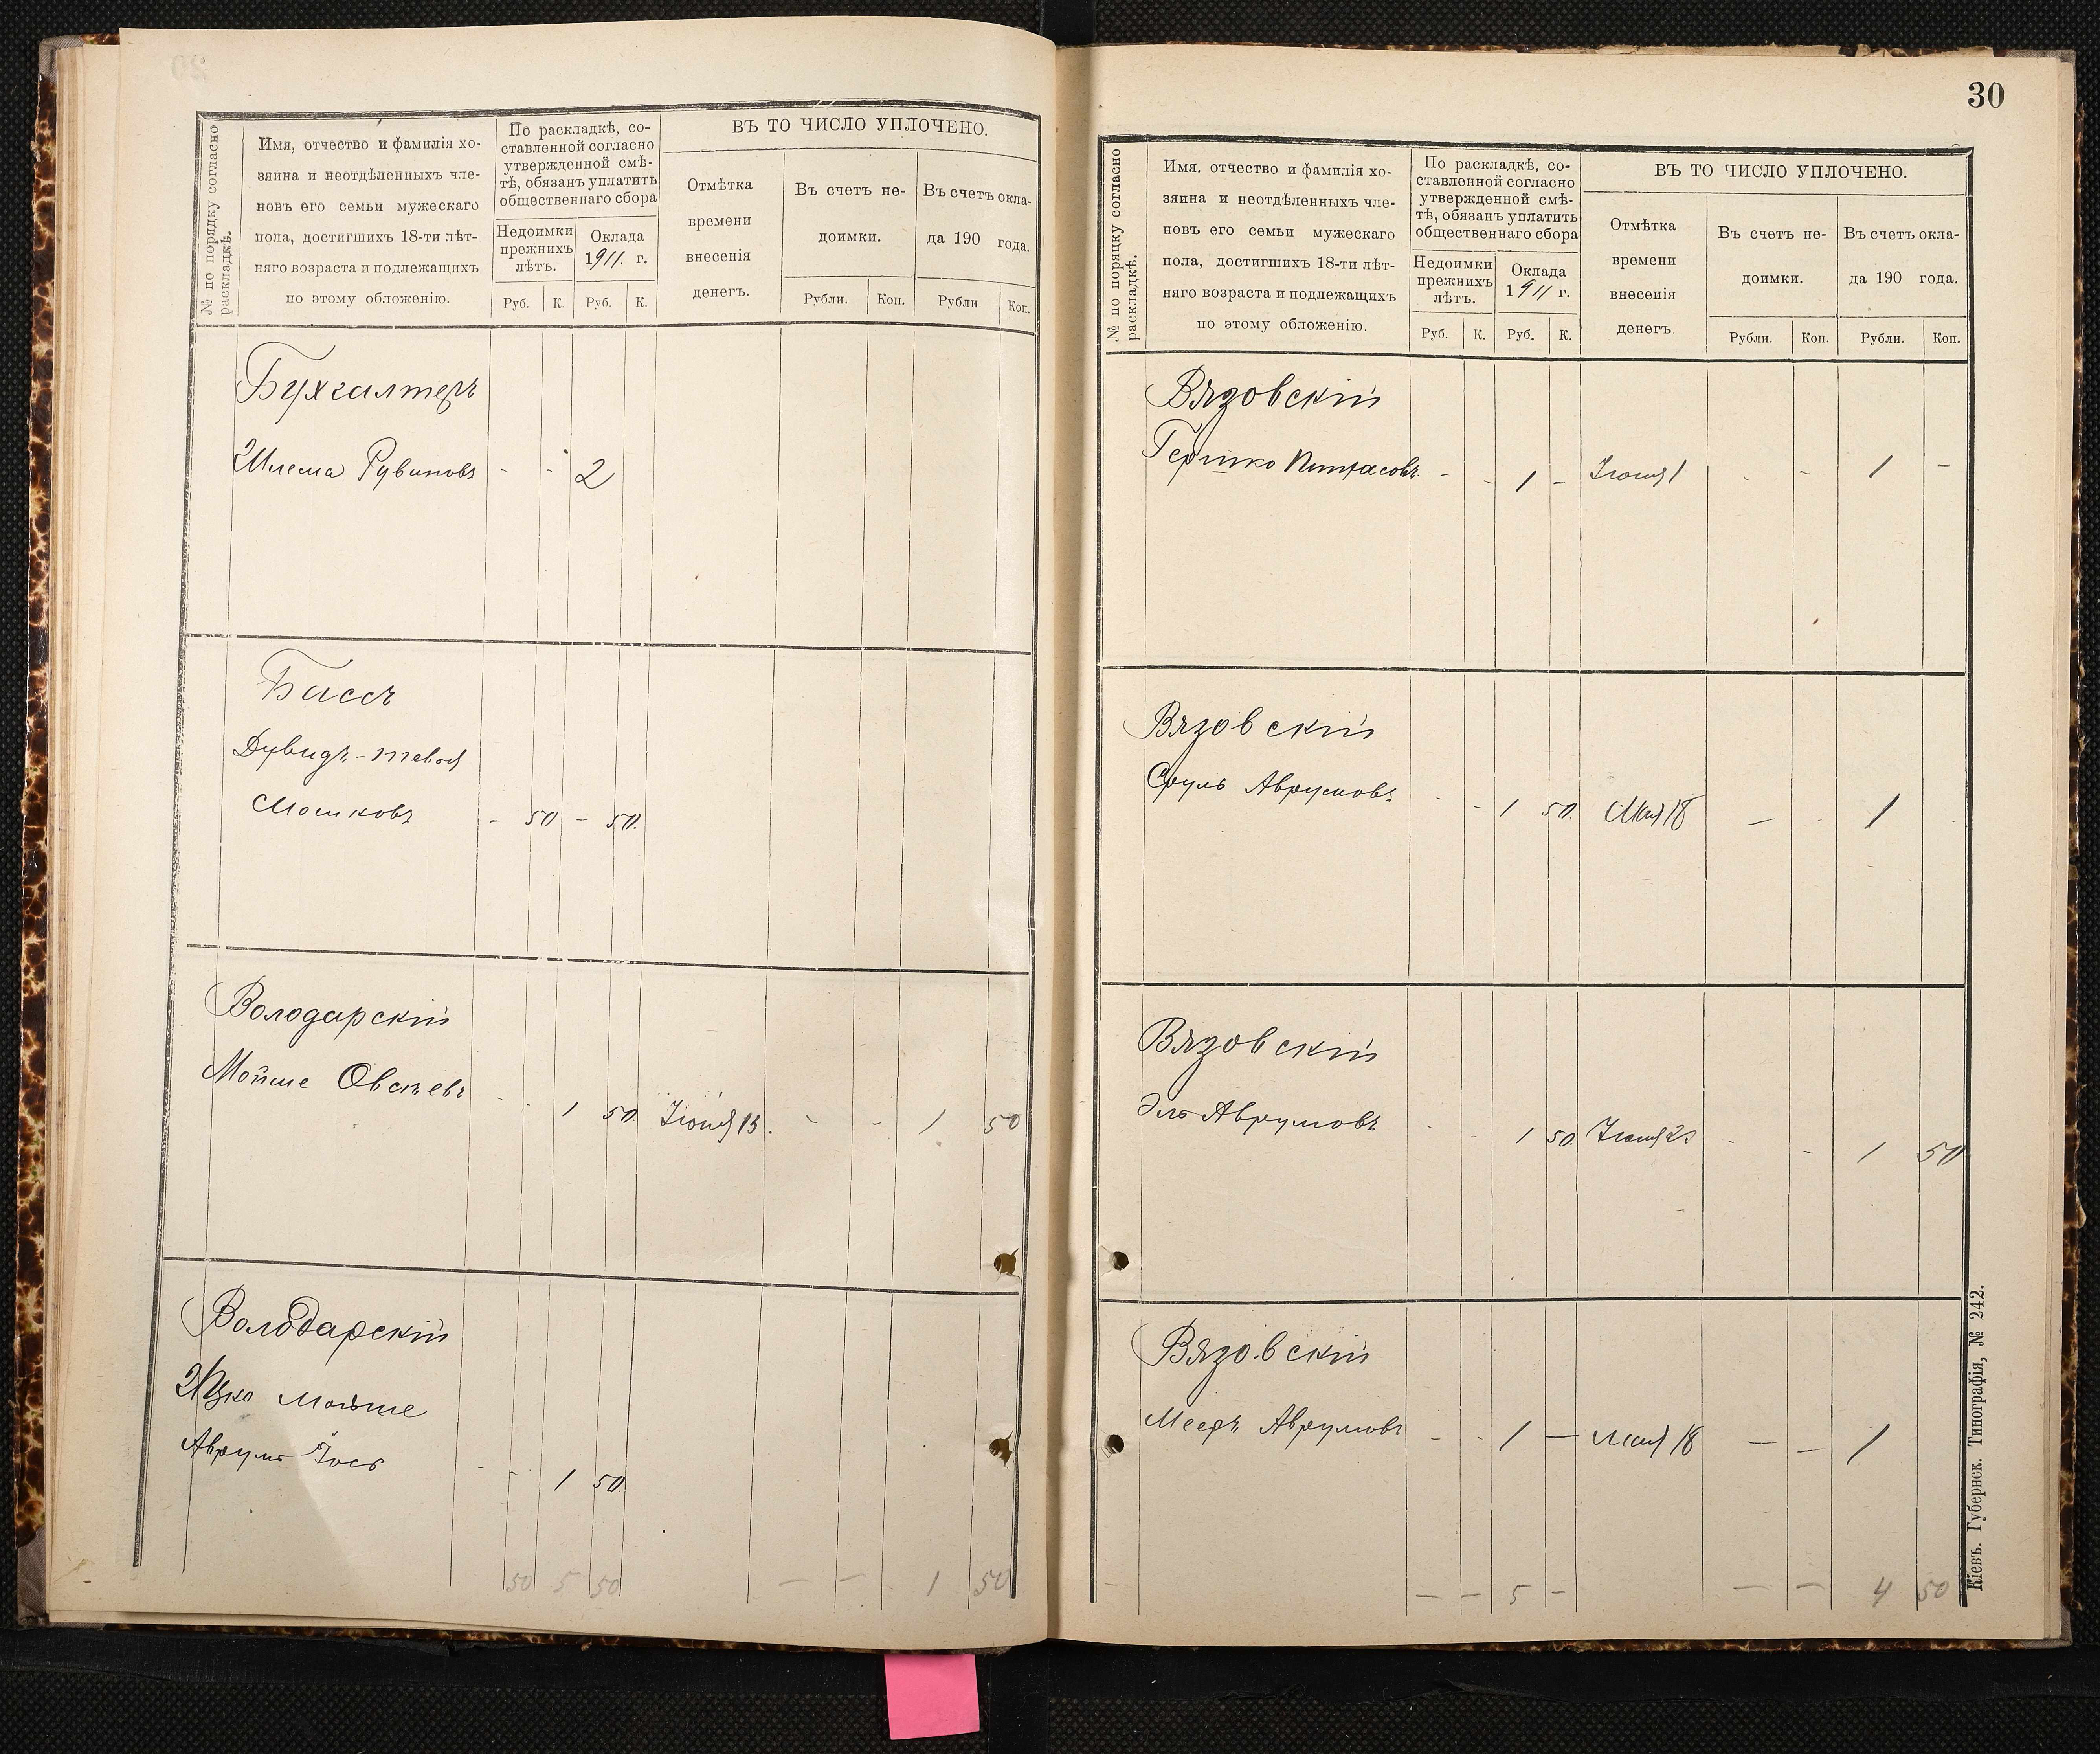 № по порядку согласно раскладкѣ.
Имя, отчество и фамилія хо-
зяина и неотдѣленныхъ чле-
новъ его семьи мужескаго
пола, достигшихъ 18-ти лѣт-
няго возраста и подлежащихъ
по этому обложенію.
По раскладкѣ, со-
ставленной согласно
утвержденной смѣ-
тѣ, обязанъ уплатить
общественнаго сбора
Недоимки
прежнихъ
лѣтъ.
Оклада
1911. г.
Руб. К. Руб. К.
ВЪ ТО ЧИСЛО УПЛОЧЕНО.
Отмѣтка
времени
внесенія
денегъ.
Въ счетъ не-
доимки.
Въ счетъ окла-
да 190 года.
Рубли. Коп. Рубли Коп.
Бухгалтеръ
Шлема Рувиновъ - - 2
Бассъ
Дувидъ-Тевья
Мошковъ - 50 - 50.
Володарскій
Мойше Овсѣевъ - - 1 50. Іюня 13. - - 1 50
Володарскій
Ицко Мойше
Аврумъ Іось - - 1 50.
50 5 50 — — 1 50
30
№ по поряцку согласно раскладкѣ.
Имя. отчество и фамилія хо-
зяина и неотдѣленныхъ чле-
новъ его семьи мужескаго
пола, достигшихъ 18-ти лѣт-
няго возраста и подлежащихъ
по этому обложенію.
По раскладкѣ, со-
ставленной согласно
утвержденной смѣ-
тѣ, обязанъ уплатить
общественнаго сбора
Недоимки
прежнихъ
лѣтъ.
Оклада
1911 г.
Руб. К. Руб. К.
ВЪ ТО ЧИСЛО УПЛОЧЕНО.
Отмѣтка
времени
внесенія
денегъ
Въ счетъ не-
доимки.
Въ счетъ окла-
да 190 года.
Рубли. Коп. Рубли. Коп.
Вязовскій
Гершко - - 1 - Іюня 1 - - 1 -
Вязовскій
Сруль Аврумовъ - - 1 50. Мая 18 — - 1
Вязовскій
Эль Аврумовъ - - 1 50. Іюня - - 1 50
Вязовскій
Мееръ Аврумовъ - - 1 — Мая 18 — — 1
— — 5 - — — 4 50
Кіевъ. Губернск. Типографія, № 242.